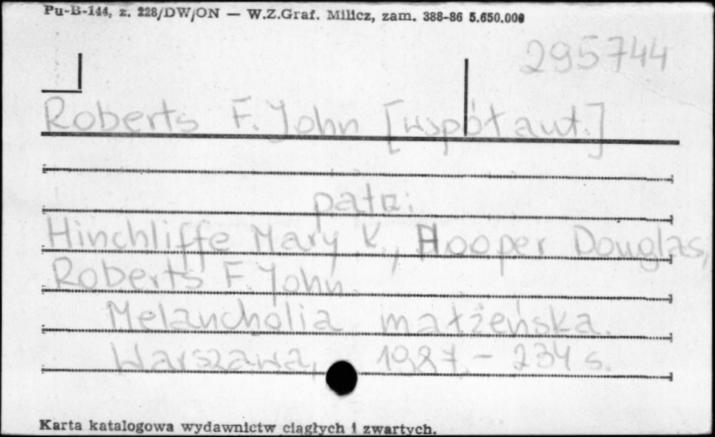 Pu-B-144, z. 228/DW/ON — W.Z.Graf. Milicz, zam. 388-86 5.650.000
295744
Roberts F. John [współaut.]
patrz:
Hinchliffe Mary K., Hooper Douglas,
Roberts F. John.
Melancholia małżeńska.
Warszawa, 1987. – 234 s.
Karta katalogowa wydawnictw ciągłych i zwartych.